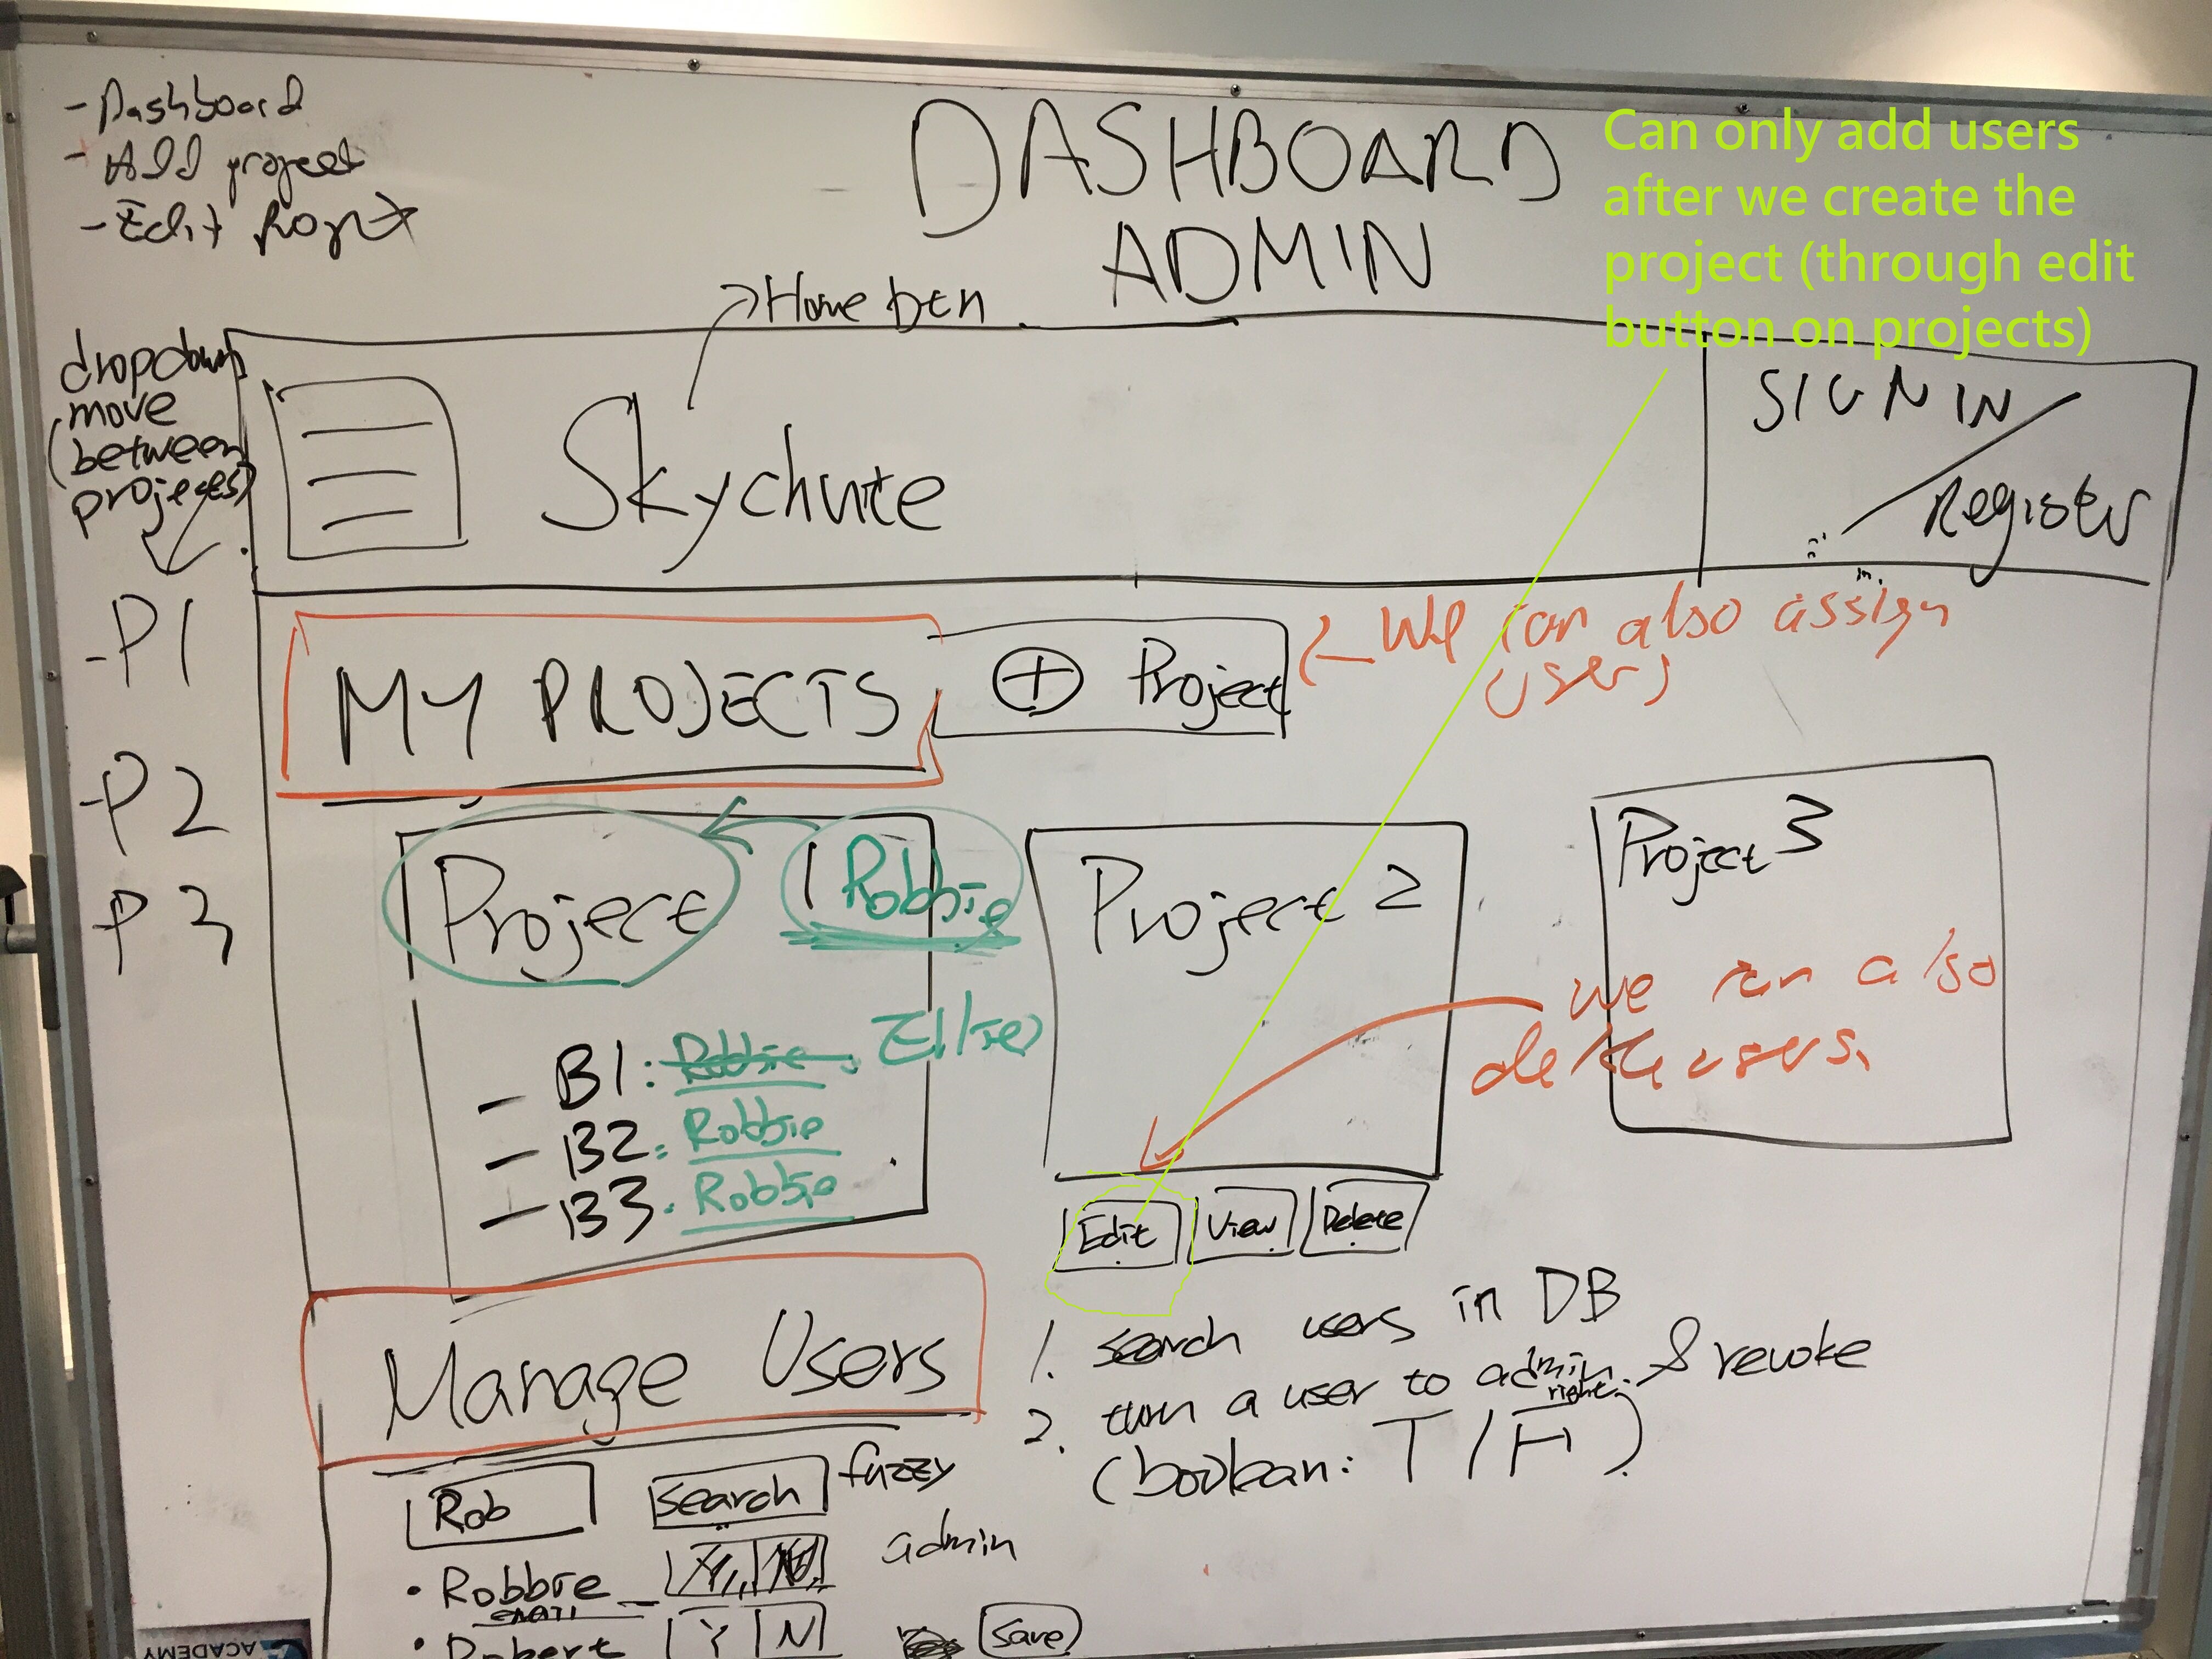 - Dashboard
- Add project
- Edit Project
DASHBOARD
ADMIN
Can only add users
after we create the
project (through edit
button on projects)
Home btn
dropdown
(move
between
projects)
Skychute
SIGN IN
/
Register
- P1
- P2
P3
MY PROJECTS
+ Project
We can also assign
users
Project 1
Robbie
- B1: Robbie.
- B2: Robbie
- B3. Robbie
Project 2
Project 3
we can also
delete users.
Edit
View
Delete
Manage Users
1. search users in DB
2. turn a user to admin & revoke
right
(boolean: T/F)
Rob
Search
fuzzy
admin
• Robbie
email
• Robert
Y N
Save
ACADEMY